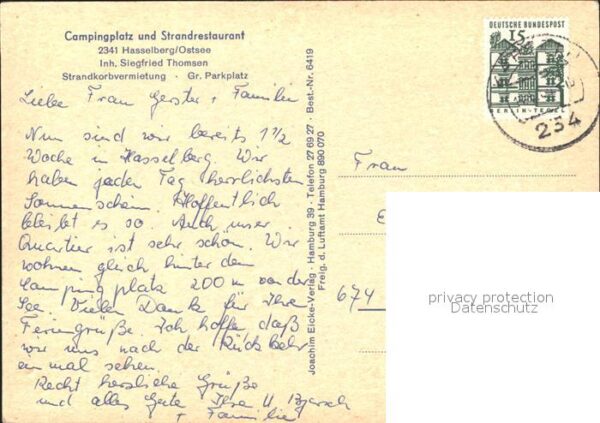 Campingplatz und Strandrestaurant
2341 Hasselberg/Ostsee
Inh. Siegfried Thomsen
Strandkorbvermietung · Gr. Parkplatz
Liebe Frau Gerster + Familie
Nun sind wir bereits 1 1/2
Woche in Hasselberg. Wir
haben jeden Tag herrlichsten
Sonnenschein. Hoffentlich
bleibt es so. Auch unser
Quartier ist sehr schön. Wir
wohnen gleich hinter dem
Campingplatz 200 m von der
See. Vielen Dank für Ihre
Feriengrüße. Ich hoffe daß
wir uns nach der Rückkehr
einmal sehen.
Recht herzliche Grüße
und alles Gute Ilse U.
+ Familie
Joachim Eicke-Verlag · Hamburg 39 · Telefon 27 69 27 · Best.-Nr. 6419
Freig. d. Luftamt Hamburg 890 070
DEUTSCHE BUNDESPOST
15
BERLIN-TEGEL
234
Frau
E
674
privacy protection
Datenschutz